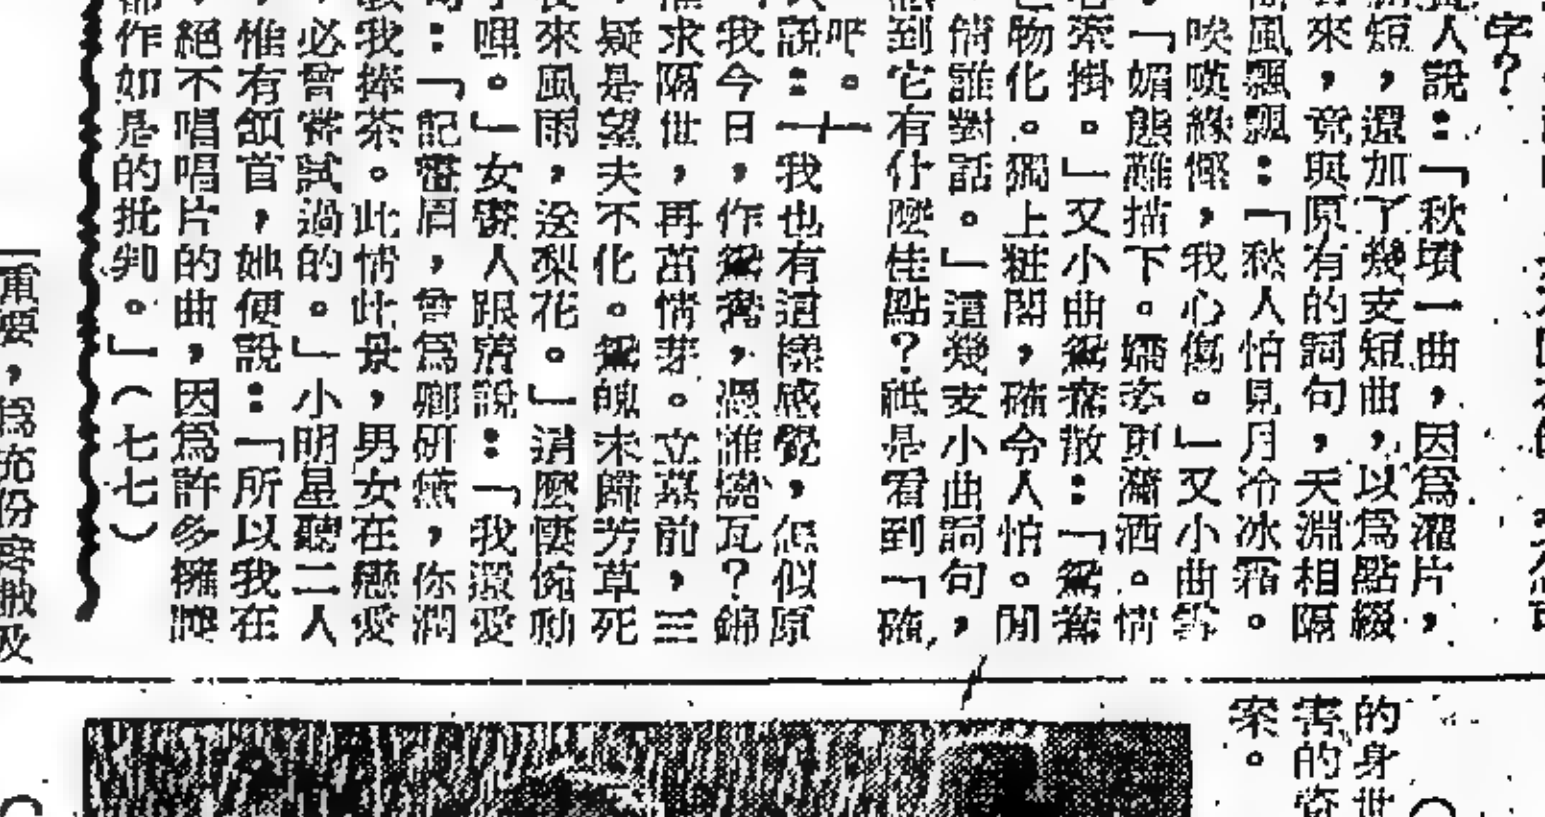 字？
人說：「秋墳一曲，因為灌片，
短，還加了幾支短曲，以為點綴
來，竟與原有的詞句，天淵相隔
風飄飄：「愁人怕見月冷冰霜。
唉嘆緣慳，我心傷。」又小曲雲
「媚態難描下。嬌姿更瀟洒。情
牽掛。」又小曲鴛鴦散：「鴛鴦
物化。獨上粧閣，確令人怕。閒
情誰對話。」這幾支小曲詞句，
到它有什麼佳點？祇是看到「確
吧。」
說：「我也有這樣感覺，怎似原
我今日，作鴛鴦，憑誰變瓦？錦
求隔世，再茁情芽。立墓前，三
疑是望夫不化。鴛魄未歸芳草死
來風雨，送梨花。」清麼悽惋動
嗶。」女聲人跟着說：「我最愛
：「記蹙眉，曾為鄉研黛，你潤
我捧茶。此情此景，男女在戀愛
必曾嘗試過的。」小明星聽二人
，惟有頷首，她便說：「所以我在
，絕不唱唱片的曲，因為許多擁躉
作如是的批判。」（七七）
重要，為
份
及
的身世
害的資
案。